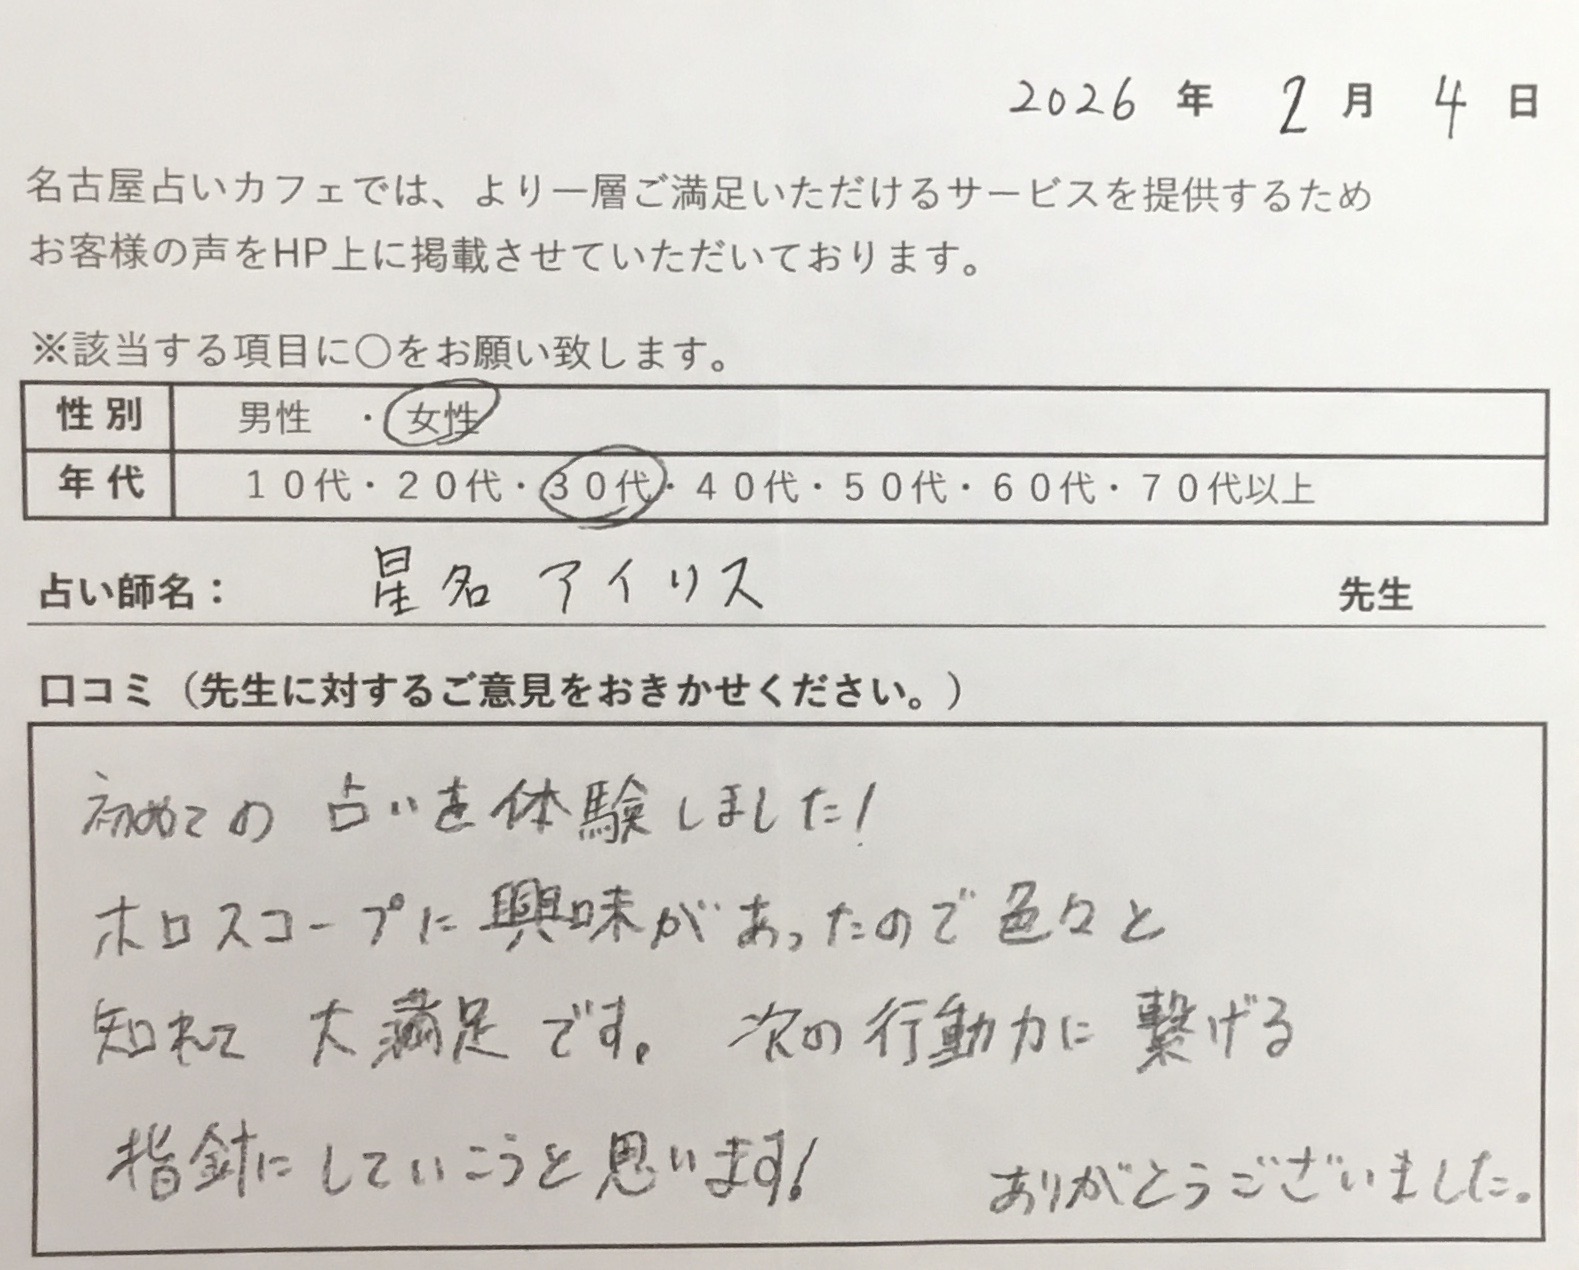 2026 年 2 月 4 日
名古屋占いカフェでは、より一層ご満足いただけるサービスを提供するため
お客様の声をHP上に掲載させていただいております。
※該当する項目に〇をお願い致します。
性別 男性 ・ 女性
年代 10代・20代・30代・40代・50代・60代・70代以上
占い師名： 星名 アイリス 先生
口コミ（先生に対するご意見をおきかせください。）
初めての 占いを体験しました!
ホロスコープに興味があったので色々と
知れて 大満足です。 次の行動力に繋げる
指針にしていこうと思います!
ありがとうございました。